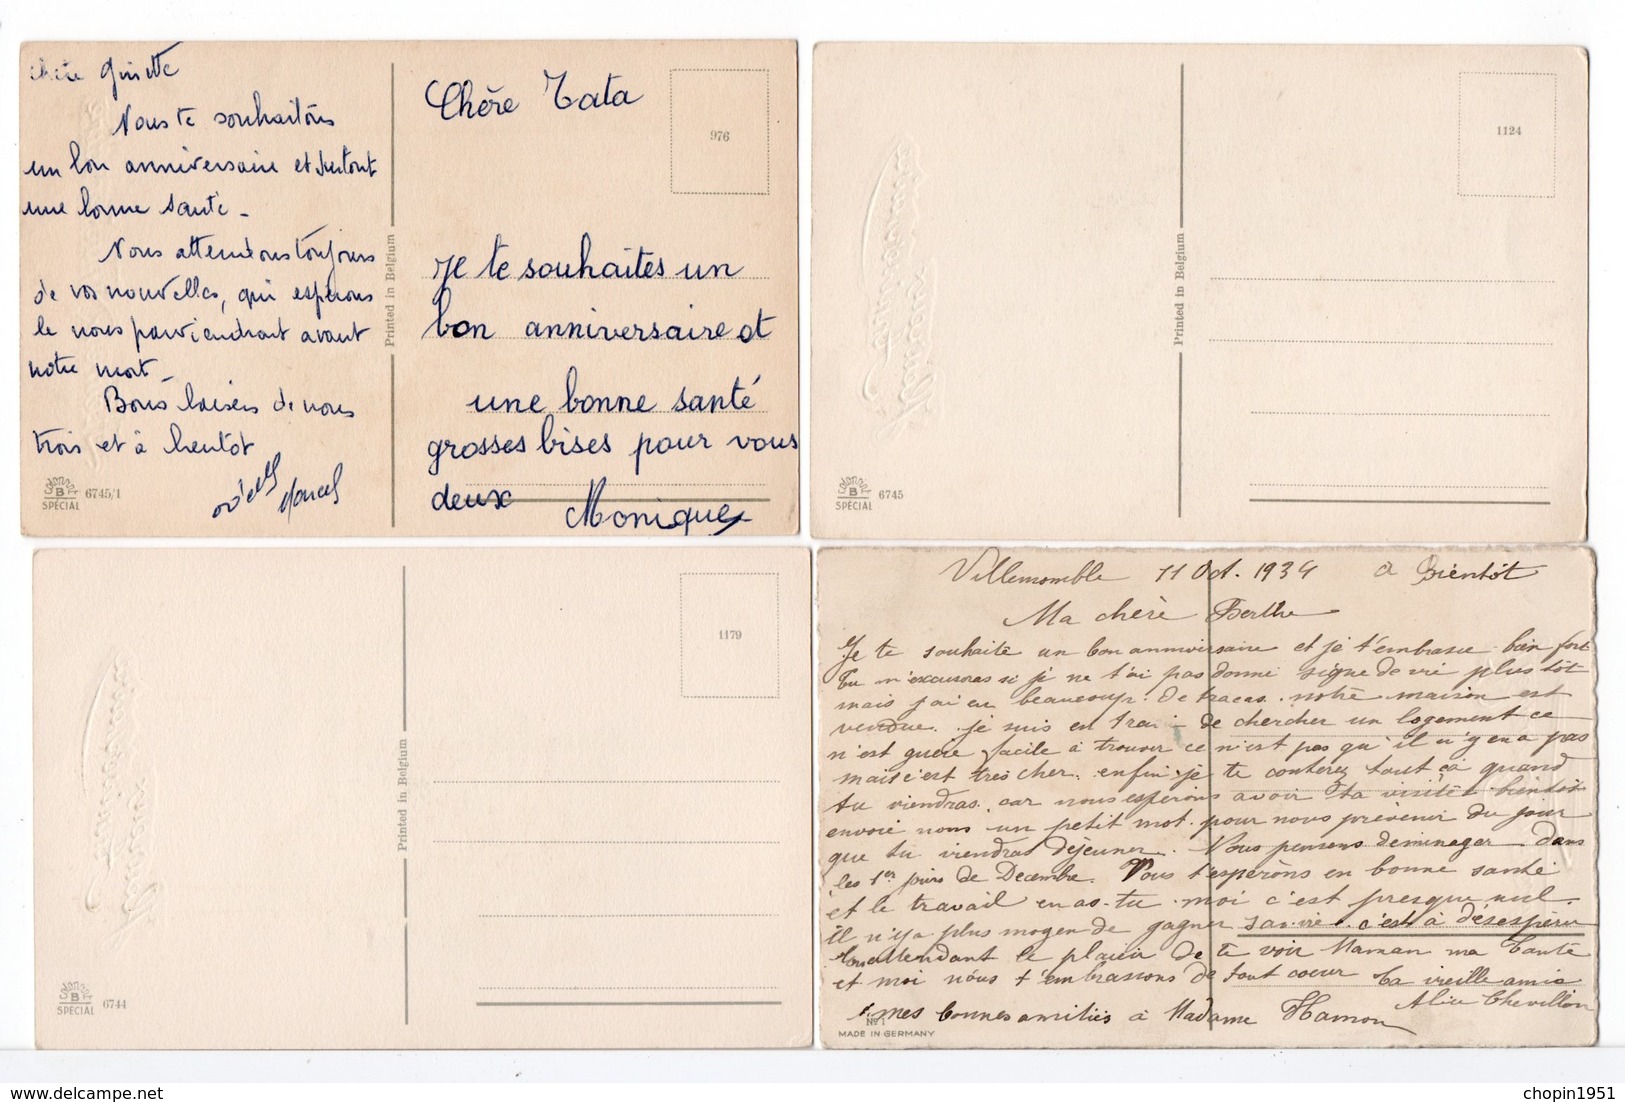 Chère Ginette
Nous te souhaitons
un bon anniversaire et surtout
une bonne santé -
Nous attendons toujours
de vos nouvelles, qui espérons
le nous parviendront avant
notre mort -
Bons baisers de nous
trois et à bientôt
Marcel
Printed in Belgium
B
SPÉCIAL
6745/1
976
Chère Tata
Je te souhaites un
bon anniversaire et
une bonne santé
grosses bises pour vous
deux
Monique
1124
Printed in Belgium
B
SPÉCIAL
6745
1179
Printed in Belgium
B
SPÉCIAL
6744
Villemomble 11 Oct. 1934 a Bientôt
Ma chère Berthe
Je te souhaite un bon anniversaire et je t'embrasse bien fort
Tu m'excuseras si je ne t'ai pas donné signe de vie plus tôt
mais j'ai eu beaucoup de tracas. notre maison est
vendue. je suis en train de chercher un logement ce
n'est guère facile à trouver ce n'est pas qu'il n'y en a pas
mais c'est tres cher. enfin je te conterez tout ça quand
tu viendras, car nous espérons avoir ta visite bientôt
envoie nous un petit mot pour nous prévenir du jour
que tu viendras déjeuner. Nous pensons déminager dans
les 1er jours de Decembre. Nous t'espérons en bonne santé
et le travail en as-tu moi c'est presque nul.
il n'y a plus moyen de gagner sa vie c'est à désespérer
En attendant le plaisir de te voir Maman ma Tante
et moi nous t'embrassons de tout coeur ta vieille amie
Alice Chevillon
mes bonnes amitiés à Madame Hamon
No 1
MADE IN GERMANY
chopin1951